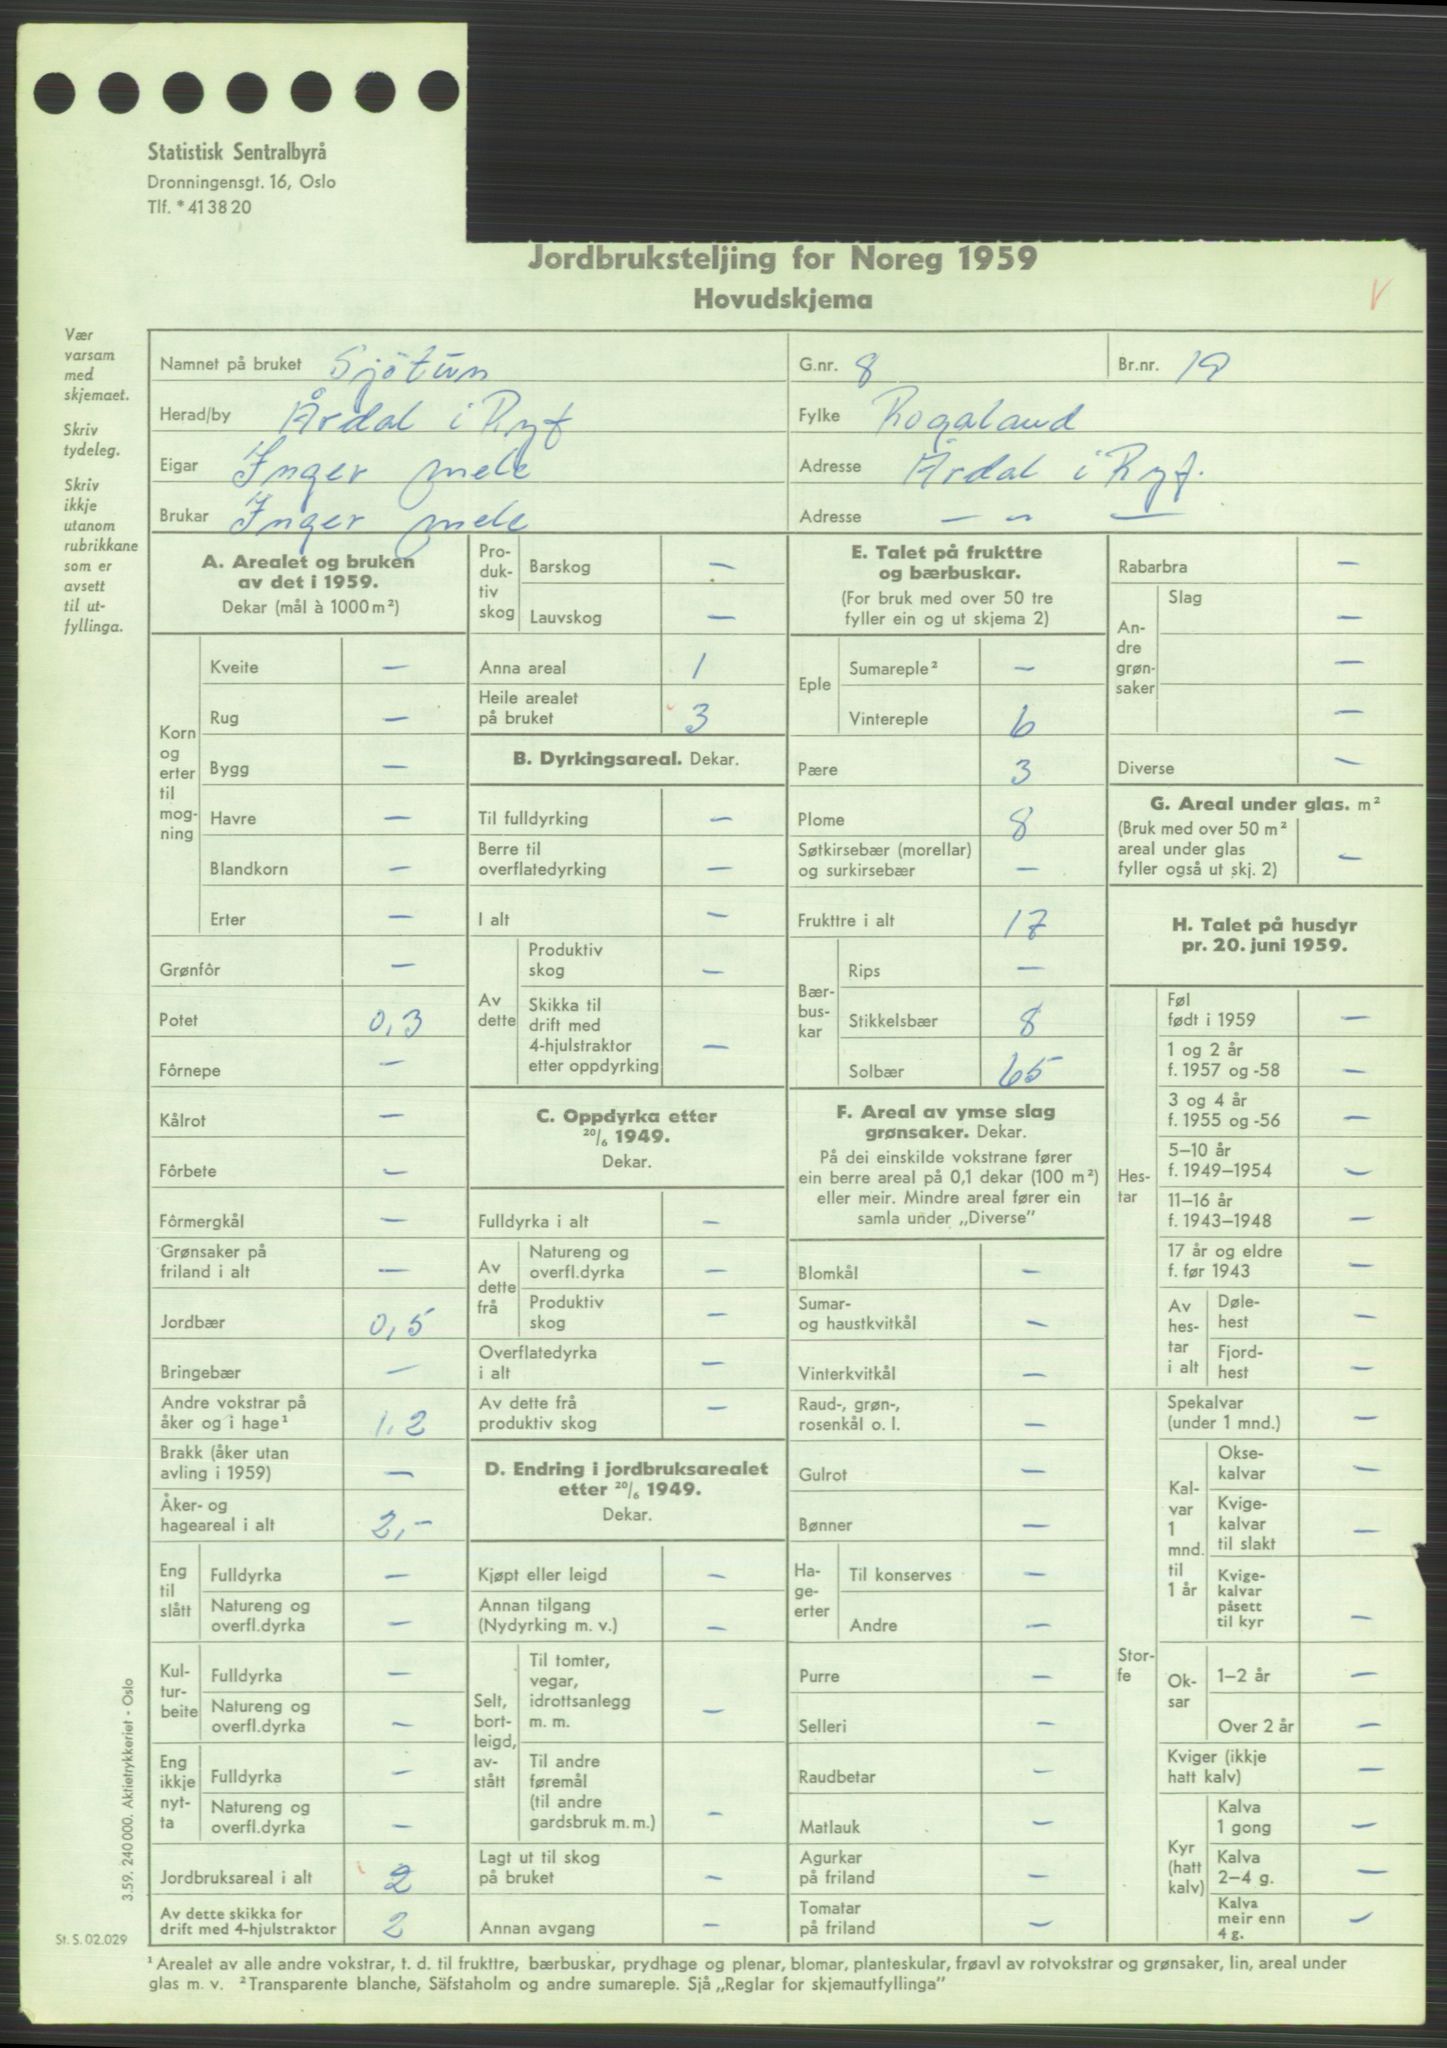 Statistisk Sentralbyrå
Dronningensgt. 16, Oslo
Tlf. *41 38 20
Jordbruksteljing for Noreg 1959
Hovudskjema
V
Vær
varsam
med
skjemaet.
Skriv
tydeleg.
Skriv
ikkje
utanom
rubrikkane
som er
avsett
til ut-
fyllinga.
Namnet på bruket Sjötun G.nr. 8 Br.nr. 19
Herad/by Årdal i Ryf Fylke Rogaland
Eigar Inger Mele Adresse Årdal i Ryf.
Brukar Inger Mele Adresse — „ —
A. Arealet og bruken
av det i 1959.
Dekar (mål à 1000 m²)
Korn
og
erter
til
mog-
ning
Kveite —
Rug —
Bygg —
Havre —
Blandkorn —
Erter —
Grønfôr —
Potet 0,3
Fôrnepe —
Kålrot —
Fôrbete —
Fôrmergkål —
Grønsaker på
friland i alt —
Jordbær 0,5
Bringebær —
Andre vokstrar på
åker og i hage¹ 1,2
Brakk (åker utan
avling i 1959) —
Åker- og
hageareal i alt 2,-
Eng
til
slått
Fulldyrka —
Natureng og
overfl.dyrka —
Kul-
tur-
beite
Fulldyrka —
Natureng og
overfl.dyrka —
Eng
ikkje
nyt-
ta
Fulldyrka —
Natureng og
overfl.dyrka —
Jordbruksareal i alt 2
Av dette skikka for
drift med 4-hjulstraktor 2
Pro-
duk-
tiv
skog
Barskog —
Lauvskog —
Anna areal 1
Heile arealet
på bruket 3
B. Dyrkingsareal. Dekar.
Til fulldyrking —
Berre til
overflatedyrking —
I alt —
Av
dette
Produktiv
skog —
Skikka til
drift med
4-hjulstraktor
etter oppdyrking —
C. Oppdyrka etter
20/6 1949.
Dekar.
Fulldyrka i alt —
Av
dette
frå
Natureng og
overfl.dyrka —
Produktiv
skog —
Overflatedyrka
i alt —
Av dette frå
produktiv skog —
D. Endring i jordbruksarealet
etter 20/6 1949.
Dekar.
Kjøpt eller leigd —
Annan tilgang
(Nydyrking m. v.) —
Selt,
bort-
leigd,
av-
stått
Til tomter,
vegar,
idrottsanlegg
m. m. —
Til andre
føremål
(til andre
gardsbruk m. m.) —
Lagt ut til skog
på bruket —
Annan avgang —
E. Talet på frukttre
og bærbuskar.
(For bruk med over 50 tre
fyller ein og ut skjema 2)
Eple
Sumareple² —
Vintereple 6
Pære 3
Plome 8
Søtkirsebær (morellar)
og surkirsebær —
Frukttre i alt 17
Bær-
bus-
kar
Rips —
Stikkelsbær 8
Solbær 65
F. Areal av ymse slag
grønsaker. Dekar.
På dei einskilde vokstrane fører
ein berre areal på 0,1 dekar (100 m²)
eller meir. Mindre areal fører ein
samla under „Diverse”
Blomkål —
Sumar-
og haustkvitkål —
Vinterkvitkål —
Raud-, grøn-,
rosenkål o. l. —
Gulrot —
Bønner —
Ha-
ge-
erter
Til konserves —
Andre —
Purre —
Selleri —
Raudbetar —
Matlauk —
Agurkar
på friland —
Tomatar
på friland —
Rabarbra —
An-
dre
grøn-
saker
Slag
—
—
—
Diverse —
G. Areal under glas. m²
(Bruk med over 50 m²
areal under glas
fyller også ut skj. 2) —
H. Talet på husdyr
pr. 20. juni 1959.
Hes-
tar
Føl
født i 1959 —
1 og 2 år
f. 1957 og -58 —
3 og 4 år
f. 1955 og -56 —
5–10 år
f. 1949–1954 —
11–16 år
f. 1943–1948 —
17 år og eldre
f. før 1943 —
Av
hes-
tar
i alt
Døle-
hest —
Fjord-
hest —
Stor-
fe
Spekalvar
(under 1 mnd.) —
Kal-
var
1
mnd.
til
1 år
Okse-
kalvar —
Kvige-
kalvar
til slakt —
Kvige-
kalvar
påsett
til kyr —
Ok-
sar
1–2 år —
Over 2 år —
Kviger (ikkje
hatt kalv) —
Kyr
(hatt
kalv)
Kalva
1 gong —
Kalva
2–4 g. —
Kalva
meir enn
4 g. —
3.59. 240 000. Aktietrykkeriet - Oslo
St. S. 02.029
¹ Arealet av alle andre vokstrar, t. d. til frukttre, bærbuskar, prydhage og plenar, blomar, planteskular, frøavl av rotvokstrar og grønsaker, lin, areal under
glas m. v. ² Transparente blanche, Säfstaholm og andre sumareple. Sjå „Reglar for skjemautfyllinga”